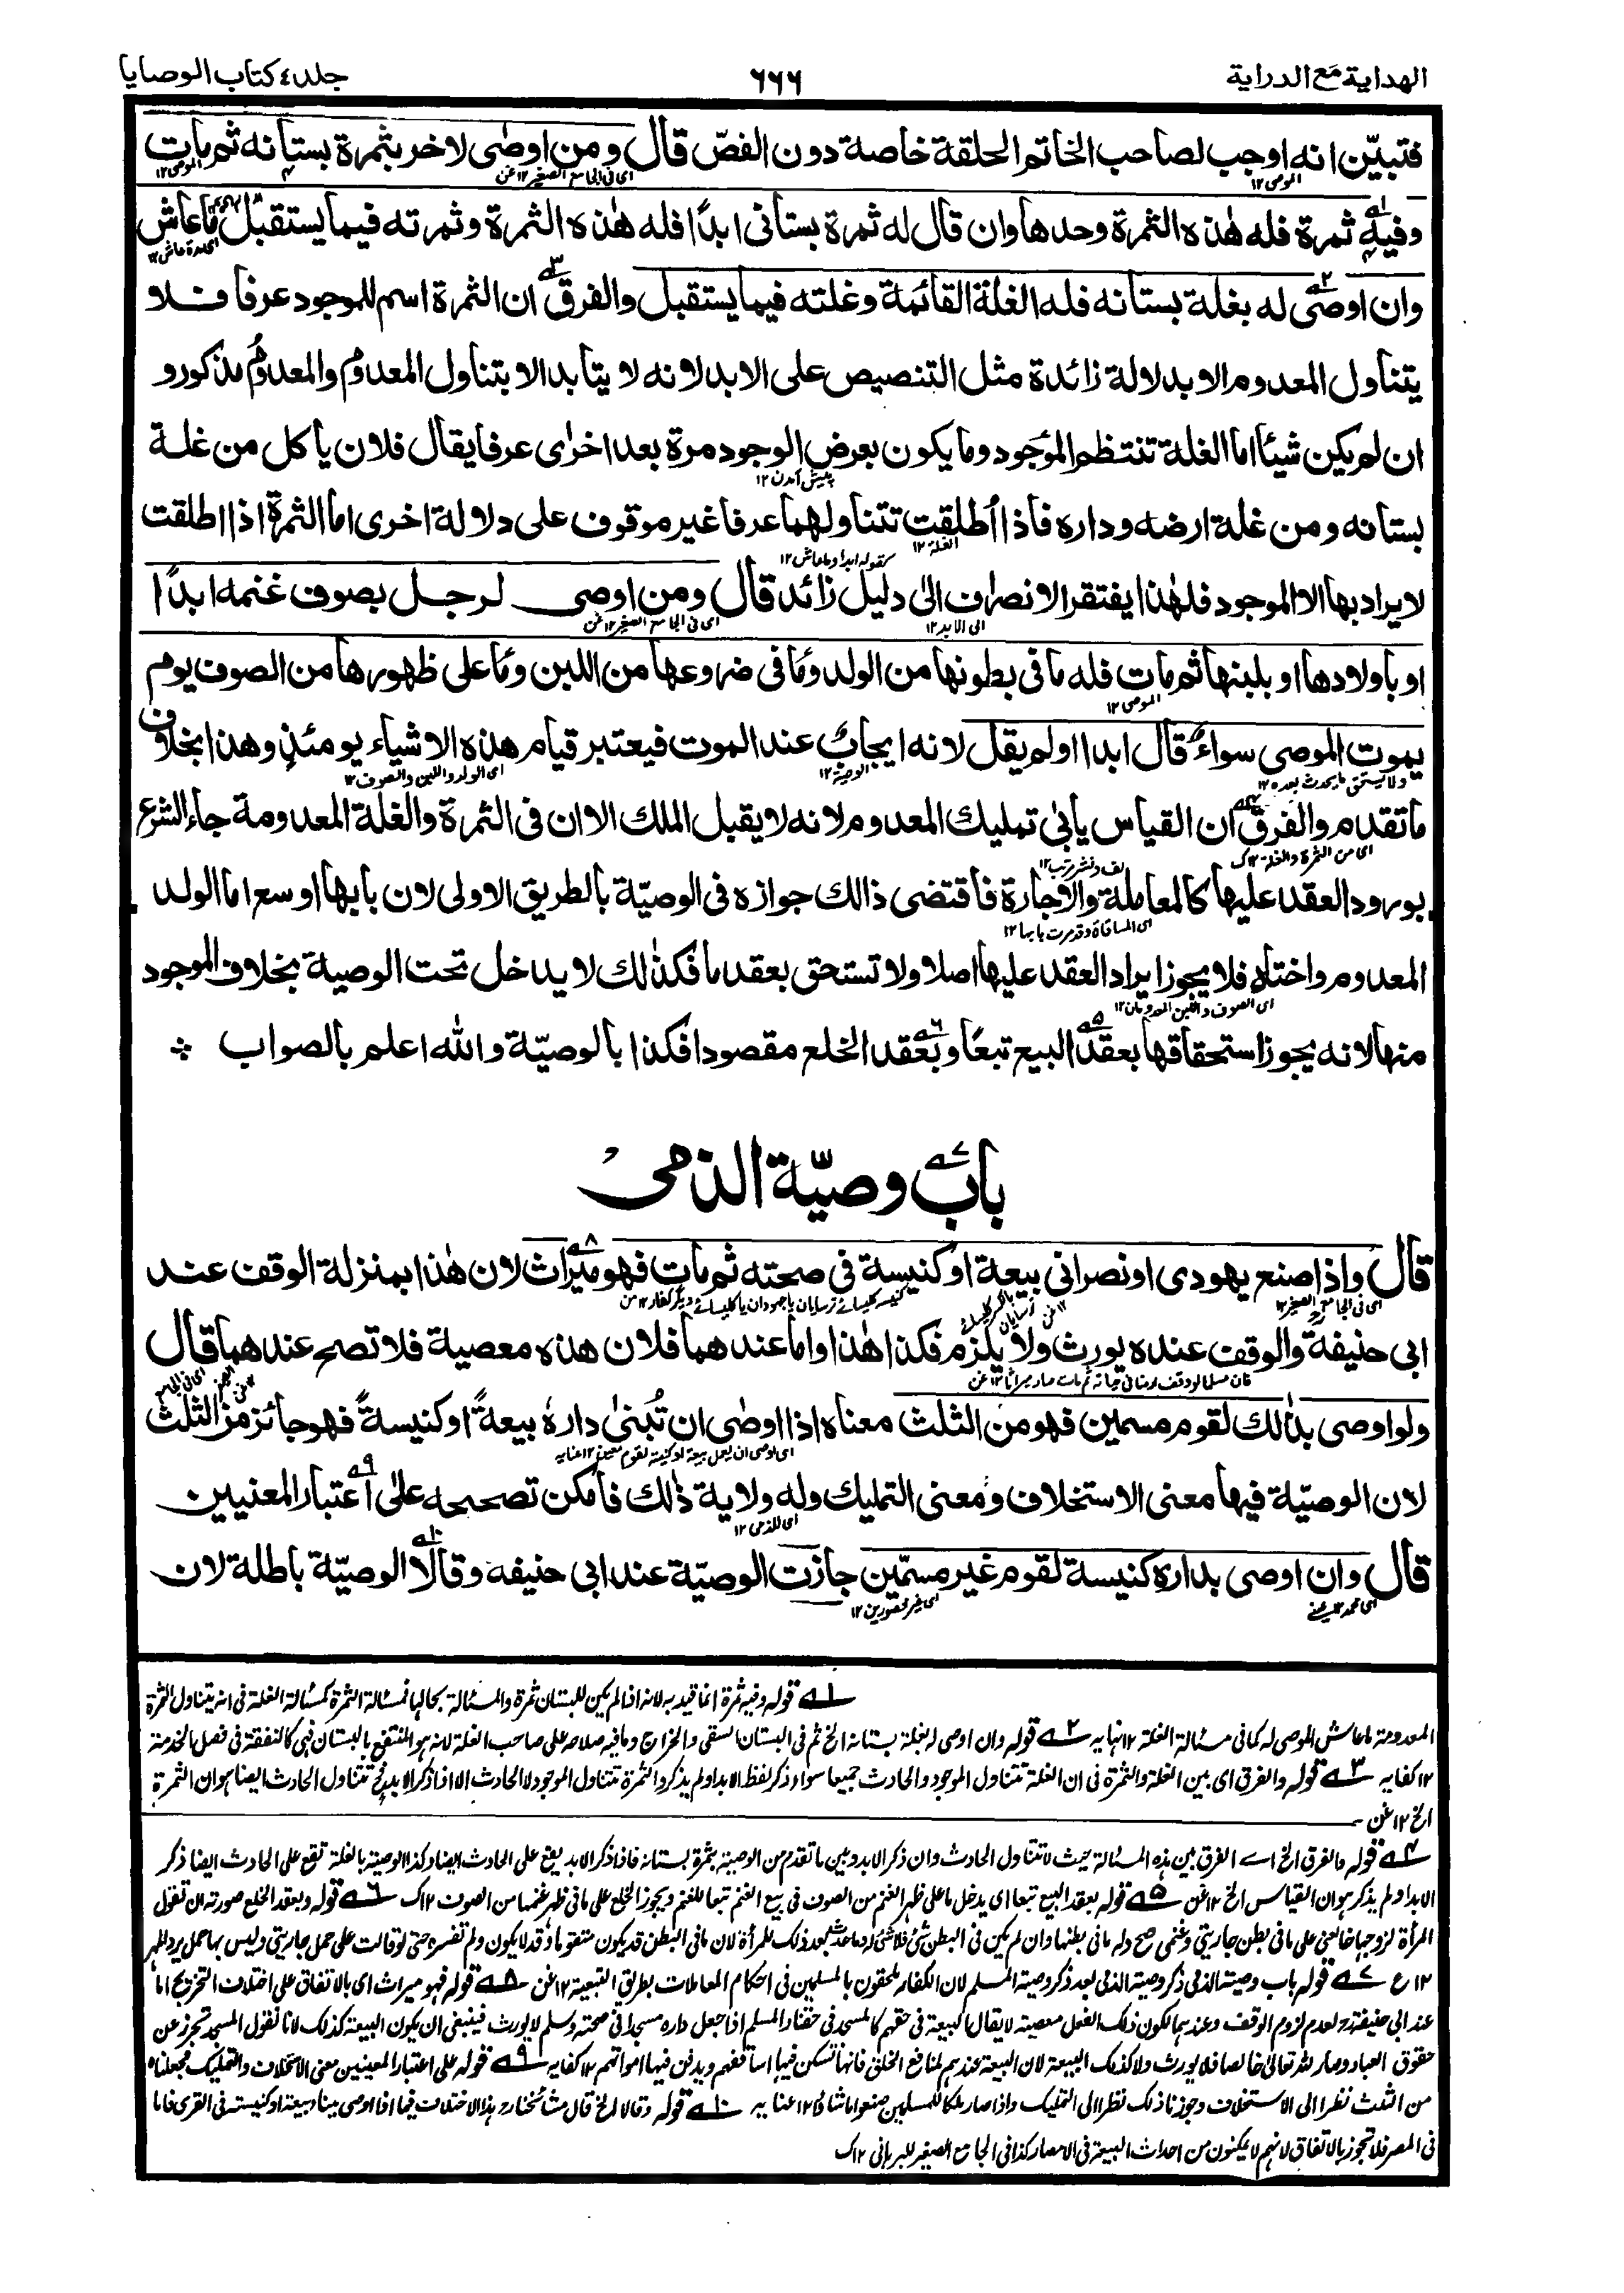 الهداية مع الدراية
٦٦٦
جلد ٤ كتاب الوصايا
فتبيّن انه اوجب لصاحب الخاتم الحلقة خاصة دون الفصّ قال ومن اوصٰى لاخر بثمرة بستانه ثم مات
الموصى ١٢
اى فى الجامع الصغير ١٢ عن
الموصى ١٢
وفيه ثمرة فله هٰذه الثمرة وحدها وان قال له ثمرة بستانى ابدًا فله هٰذه الثمرة وثمرته فيما يستقبل ما عاش
وان اوصٰى له بغلة بستانه فله الغلة القائمة وغلته فيما يستقبل والفرق ان الثمرة اسم للموجود عرفا فلا
يتناول المعدوم الا بدلالة زائدة مثل التنصيص على الابد لانه لا يتابد الا بتناول المعدوم والمعدوم مذكور و
ان لم يكن شيئا اما الغلة تنتظم الموجود وما يكون بعرض الوجود مرة بعد اخرٰى عرفا يقال فلان ياكل من غلة
پیش آمدن ١٢
بستانه ومن غلة ارضه وداره فاذا اُطلقت تتناولهما عرفا غير موقوف على دلالة اخرى اما الثمرة اذا اطلقت
الغلة ١٢
كقوله ابدا وما عاش ١٢
لا يراد بها الا الموجود فلهٰذا يفتقر الانصراف الىٰ دليل زائد قال ومن اوصى لرجل بصوف غنمه ابدًا
الى الابد ١٢
اى فى الجامع الصغير ١٢ عن
او باولادها او بلبنها ثم مات فله ما فى بطونها من الولد وما فى ضروعها من اللبن وما على ظهورها من الصوف يوم
الموصى ١٢
يموت الموصى سواء قال ابدا او لم يقل لانه ايجاب عند الموت فيعتبر قيام هذه الاشياء يومئذٍ وهذا بخلاف
ولا يستحق ما يحدث بعده ١٢
الوصية ١٢
اى الولد واللبن والصوف ١٢
ما تقدم والفرق ان القياس يأبى تمليك المعدوم لانه لا يقبل الملك الا ان فى الثمرة والغلة المعدومة جاء الشرع
اى من الثمرة والغلة ١٢ ك
لف ونشر مرتب ١٢
بورود العقد عليها كالمعاملة والاجارة فاقتضى ذالك جوازه فى الوصيّة بالطريق الاولى لان بابها اوسع اما الولد
اى المساقاة وقد مرت بابها ١٢
المعدوم واختاه فلا يجوز ايراد العقد عليها اصلا ولا تستحق بعقد ما فكذٰلك لا يدخل تحت الوصية بخلاف الموجود
اى الصوف واللبن المعدومان ١٢
منها لانه يجوز استحقاقها بعقد البيع تبعًا وبعقد الخلع مقصودا فكذا بالوصيّة والله اعلم بالصواب
باب وصيّة الذمى
قال واذا صنع يهودى او نصرانى بيعة او كنيسة فى صحته ثم مات فهو ميراث لان هٰذا بمنزلة الوقف عند
اى فى الجامع الصغير ١٢
ابى حنيفة والوقف عنده يورث ولا يلزم فكذا هٰذا واما عندهما فلان هذه معصية فلا تصح عندهما قال
ولو اوصى بذٰلك لقوم مسمين فهو من الثلث معناه اذا اوصٰى ان تُبنىٰ داره بيعةً او كنيسةً فهو جائز من الثلث
اى اوصى ان يعمل بيعة او كنيسة لقوم معين ١٢ عنايه
لان الوصيّة فيها معنى الاستخلاف ومعنى التمليك وله ولاية ذٰلك فامكن تصحيحه علىٰ اعتبار المعنيين
اى للذمى ١٢
قال وان اوصى بداره كنيسة لقوم غير مسمّين جازت الوصيّة عند ابى حنيفه وقالا الوصيّة باطلة لان
اى غير محصورين ١٢
١ قوله وفيه ثمرة انما قيد به لانه اذا لم يكن للبستان ثمرة والمسئالة بحالها فمسئالة الثمرة كمسئالة الغلة فى انه يتناول الثمرة
المعدومة ما عاش الموصى له كما فى مسئالة الغلة ١٢ نهايه ٢ قوله وان اوصى له بغلة بستانه الخ ثم فى البستان السقى والخراج وما فيه صلاحه على صاحب الغلة لانه هو المنتفع بالبستان فهى كالنفقة فى فصل الخدمة
١٢ كفايه ٣ قوله والفرق اى بين الغلة والثمرة فى ان الغلة تتناول الموجود والحادث جميعا سواء ذكر لفظ الابد او لم يذكر والثمرة تتناول الموجود لا الحادث الا اذا ذكر الابد فح تتناول الحادث ايضا هو ان الثمرة
الخ ١٢ عن
٤ قوله والفرق الخ اے الفرق بين هذه المسئالة حيث لا تتناول الحادث وان ذكر الابد وبين ما تقدم من الوصية بثمرة بستانه فاذا ذكر الابد يقع على الحادث ايضا وكذا الوصية بالغلة تقع على الحادث ايضا ذكر
الابد او لم يذكر هو ان القياس الخ ١٢ عن ٥ قوله بعقد البيع تبعا اى يدخل ما على ظهر الغنم من الصوف فى بيع الغنم تبعا للغنم ويجوز الخلع على ما فى ظهر غنمها من الصوف ١٢ ك ٦ قوله وبعقد الخلع صورته ان تقول
المرأة لزوجها خالعنى على ما فى بطن جاريتى وغنمى صح وله ما فى بطنها وان لم يكن فى البطن شئ فلا شئ له وما حدث بعد ذلك للمرأة لان ما فى البطن قد يكون متقوما وقد لا يكون ولم تغره حتى لو قالت على حمل جاريتى وليس بها حمل يرد المهر
١٢ ع ٧ قوله باب وصية الذمى ذكر وصية الذمى بعد ذكر وصية المسلم لان الكفار ملحقون بالمسلمين فى احكام المعاملات بطريق التبعية ١٢ عن ٨ قوله فهو ميراث اى بالاتفاق على اختلاف التخريج اما
عند ابى حنيفة رح لعدم لزوم الوقف وعندهما لكون ذلك الفعل معصية لا يقال البيعة فى حقهم كالمسجد فى حقنا والمسلم اذا جعل داره مسجدا فى صحته وسلم لا يورث فينبغى ان يكون البيعة كذلك لانا نقول المسجد تحرز عن
حقوق العباد وصار لله تعالىٰ خالصا فلا يورث ولا كذلك البيعة لان البيعة عندهم لمنافع الخلق فانها تسكن فيها اساقفهم ويدفن فيها امواتهم ١٢ كفايه ٩ قوله على اعتبار المعنيين معنى الاستخلاف والتمليك فجعلناه
من الثلث نظرا الى الاستخلاف وجوزنا ذلك نظرا الى التمليك واذا صار ملكا للمسلمين صنعوا ما شاؤا ١٢ عنايه ١٠ قوله وقالا الخ قال مشائخنا رح هذا الاختلاف فيما اذا اوصى ببناء بيعة او كنيسة فى القرى فاما
فى المصر فلا تجوز بالاتفاق لانهم لا يمكنون من احداث البيعة فى الامصار كذا فى الجامع الصغير للبرهانى ١٢ ك